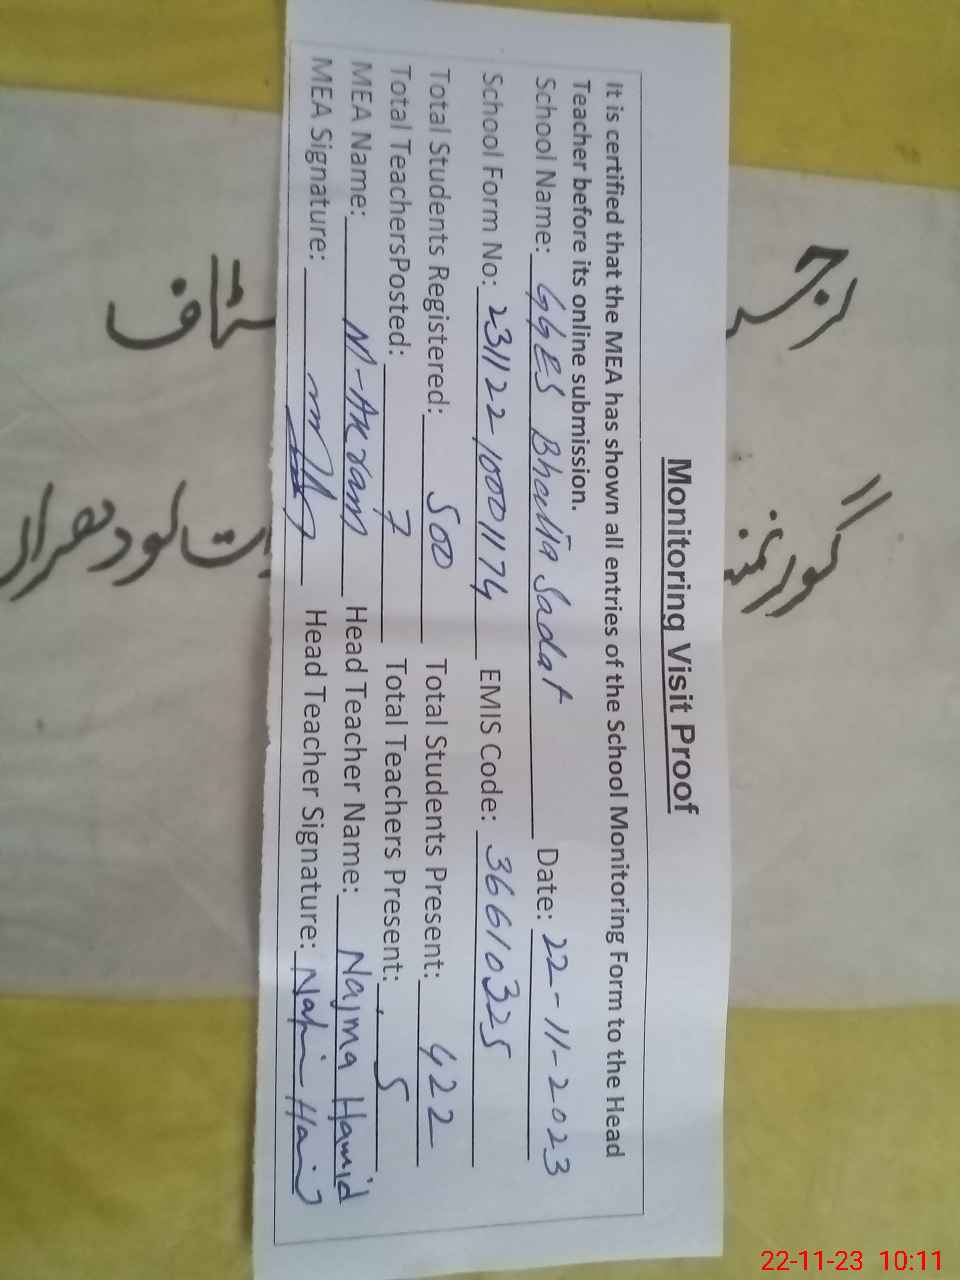 Monitoring Visit Proof
It is certified that the MEA has shown all entries of the School Monitoring Form to the Head
Teacher before its online submission.
School Name: GGES Bhatia Sadat Date: 22-11-2023
School Form No: 231122 10001174 EMIS Code: 36610325
Total Students Registered: 500 Total Students Present: 422
Total TeachersPosted: 7 Total Teachers Present: 5
MEA Name: M-Akram Head Teacher Name: Najma Hamid
MEA Signature: Head Teacher Signature:
22-11-23 10:11